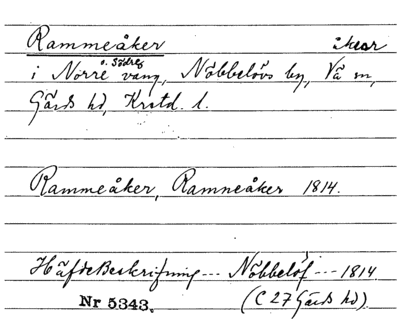 Rammeåker åkrar
o. Södra
i Norre vang, Nöbbelövs by, Vä sn,
Gärds hd, Krstd. l.
Rammeåker, Ramneåker 1814.
HäfdeBeskrifning --- Nöbbelöf --- 1814
Nr 5343. (C 27 Gärds hd).